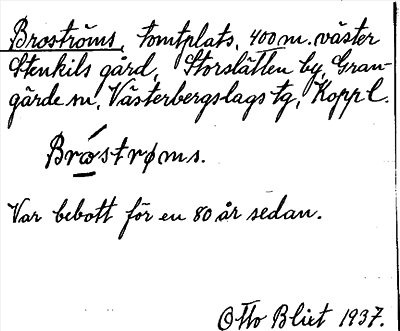 Broströms, tomtplats, 400 m. väster
Stenkils gård, Storslätten by, Gran-
gärde sn, Västerbergslags tg, Koppl.
Brǿstrøms.
Var bebott för en 80 år sedan.
Otto Blixt 1937.